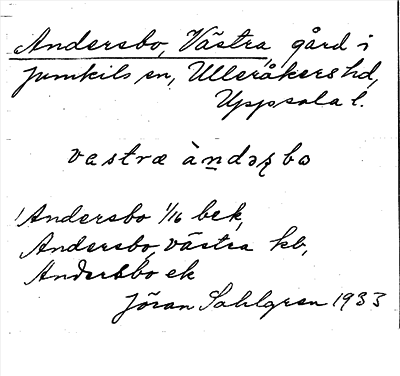 Andersbo, Västra, gård i
Jumkils sn, Ulleråkers hd,
Uppsala l.
vastræ àndəʂbo
Andersbo 1/16 bek,
Andersbo, västra kb,
Andersbo ek
Jöran Sahlgren 1933